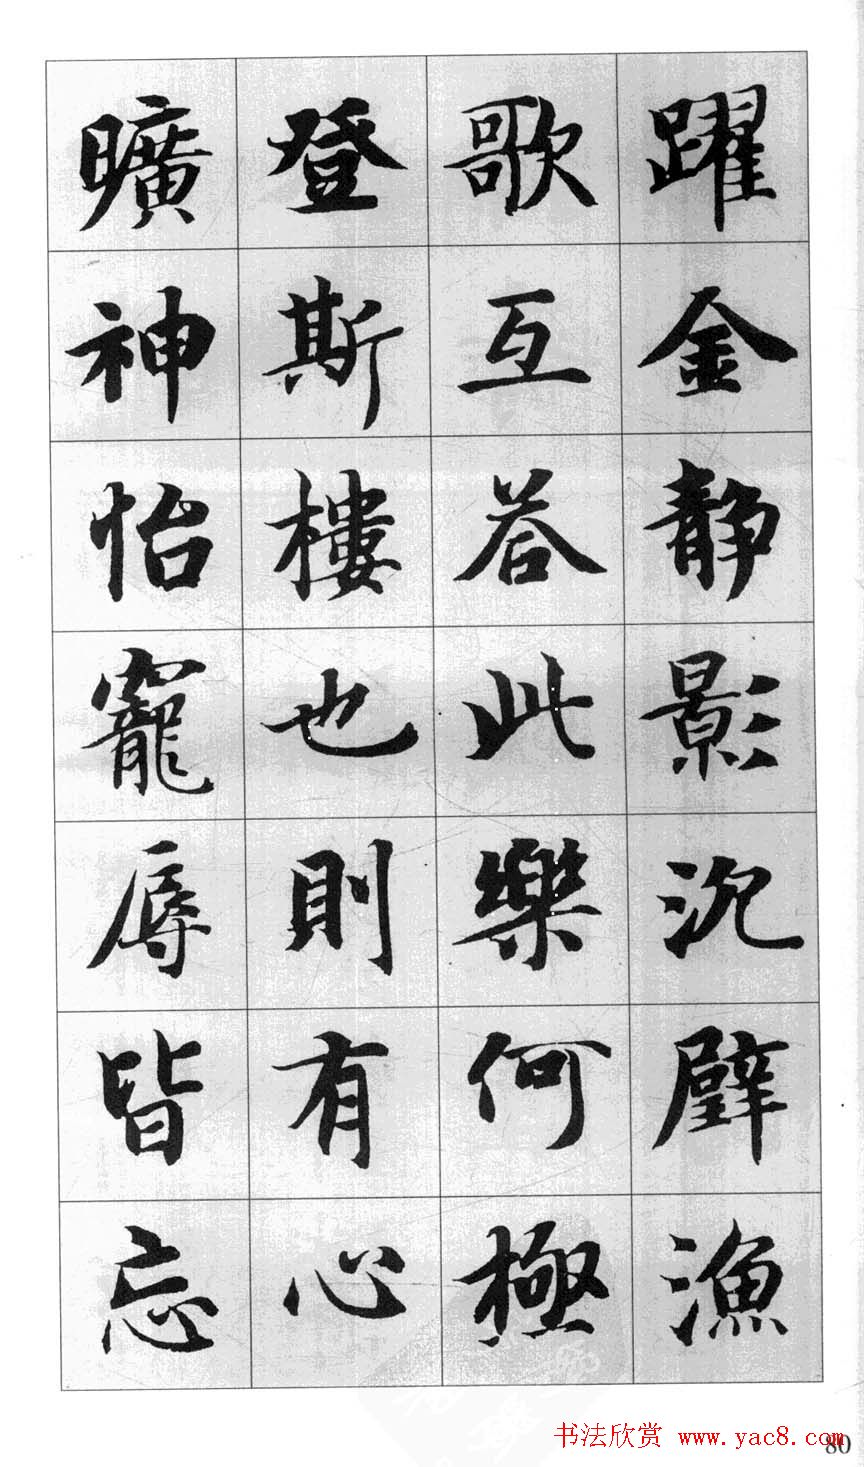 躍金静影沉璧漁
歌互答此樂何極
登斯樓也則有心
曠神怡寵辱皆忘
书法欣赏 www.yac8.com
80